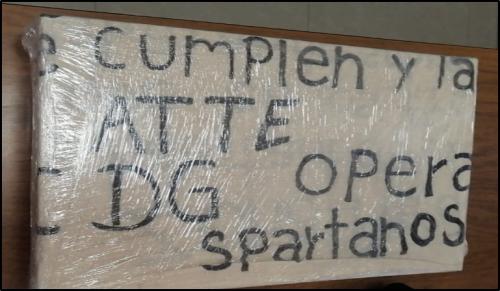 e cumplen y la
ATTE
DG opera
spartanos